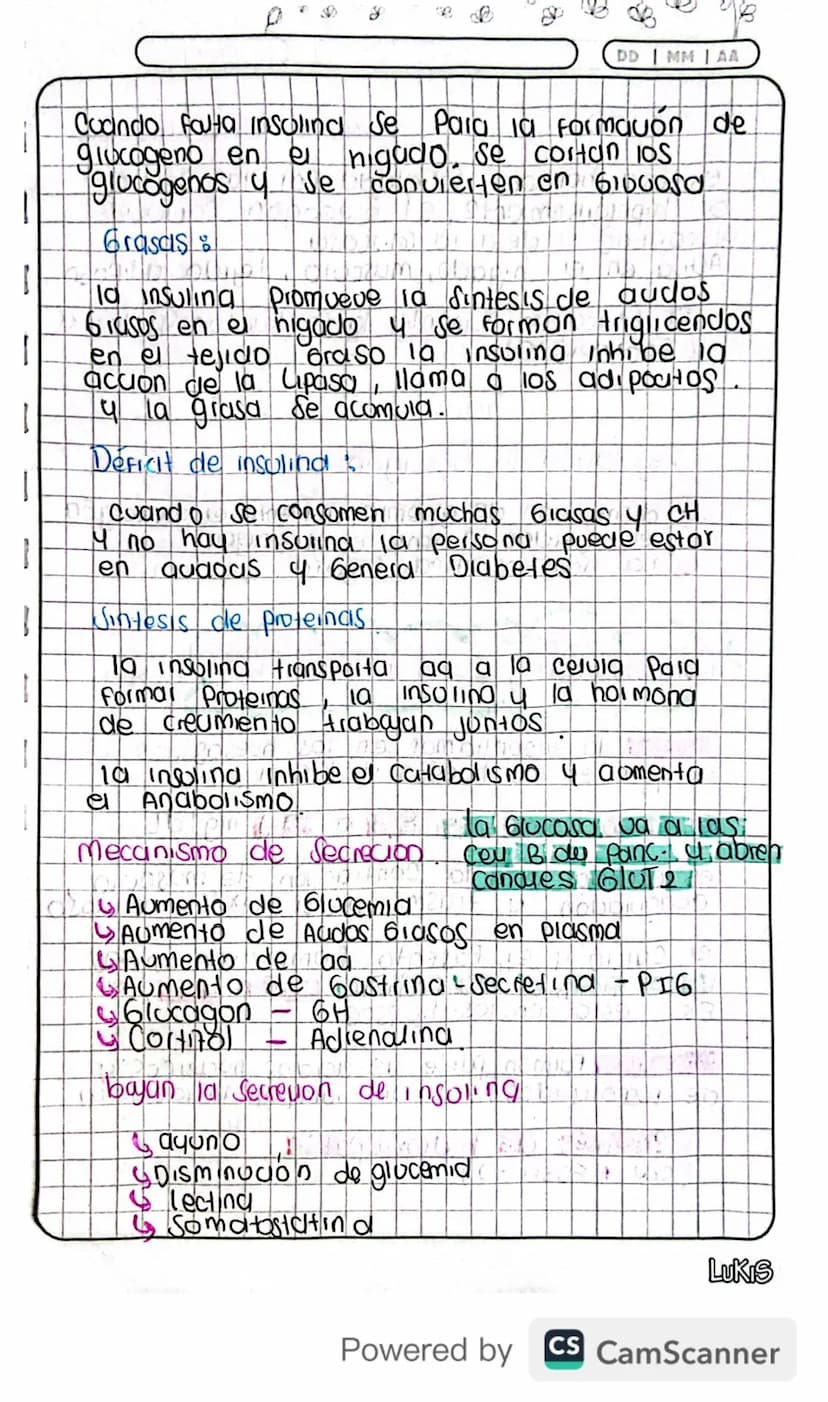 DD | MM | AA
Cuando falta insulina se Para la formación de
glucogeno en el higado. se cortan los
glucógenos y se convierten en Glucosa
Grasas :
la insulina promueve la sintesis de acidos
Grasos en el higado y se forman trigliceridos
en el tejido Graso la insulina inhibe la
acción de la Lipasa, llama a los adipocitos.
y la grasa se acomula.
Déficit de insulina :
cuando se consomen muchas Grasas y CH
y no hay insulina la persona puede estar
en and y Genera Diabetes
Sintesis de proteinas
la insulina transporta aa a la celula para
formar Proteinas, la insulina y la hormona
de crecimiento trabajan juntos.
la insulina inhibe el Catabolismo y aomenta
el Anabolismo.
la Glucosa va a las
Mecanismo de Secrecion. Cel B del Panc. y abren
canales GluT2
↳ Aumento de Glucemia
↳ Aumento de Acidos Grasos en plasma
↳ Aumento de aa
↳ Aumento de Gastrina - secretina - PIG
↳ Glucagon - GH
↳ Cortisol - Adrenalina.
bajan la Secrecion de insulina
↳ ayuno
↳ Disminución de glucemia
↳ lectina
↳ Somatostatina
LUKIS
Powered by CS CamScanner